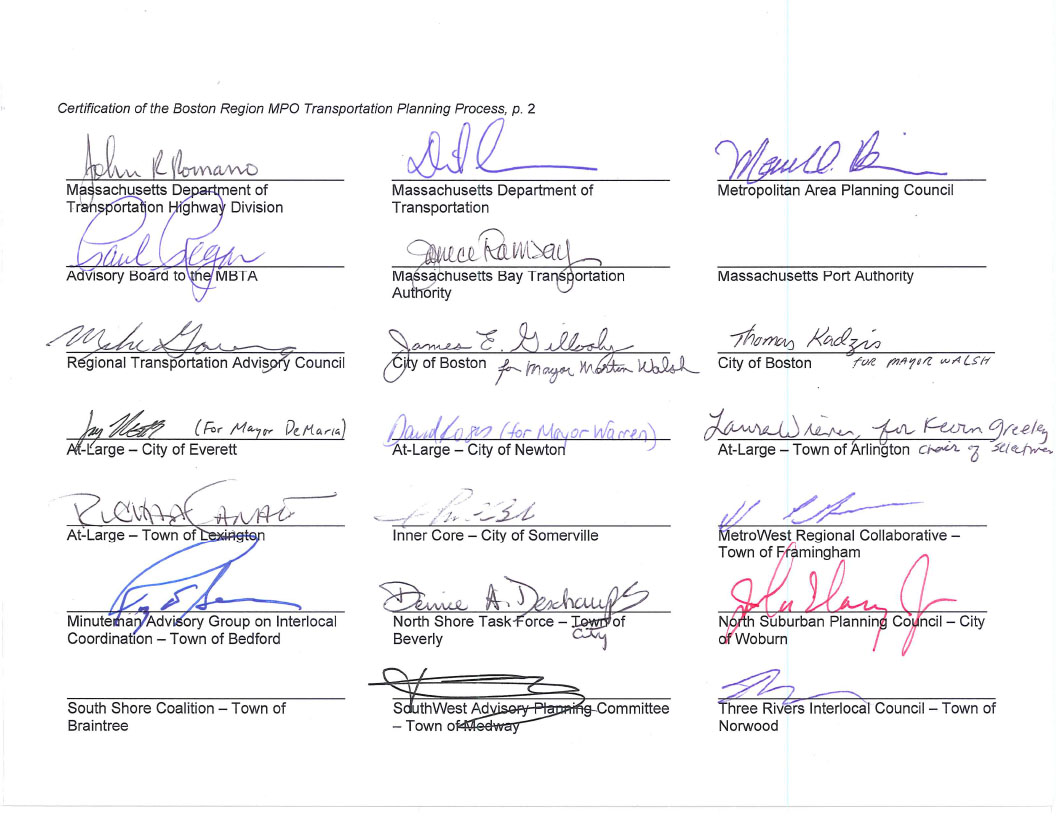 Certification of the Boston Region MPO Transportation Planning Process, p. 2
John R Romano
Massachusetts Department of
Transportation Highway Division
Massachusetts Department of
Transportation
Metropolitan Area Planning Council
Paul Regan
Advisory Board to the MBTA
Janece Ramsay
Massachusetts Bay Transportation
Authority
Massachusetts Port Authority
Mike
Regional Transportation Advisory Council
James E. Gillooly
City of Boston for Mayor Martin Walsh
Thomas Kadzis
City of Boston FOR MAYOR WALSH
Jay (For Mayor DeMaria)
At-Large – City of Everett
David Koses (for Mayor Warren)
At-Large – City of Newton
Laura Wiener, for Kevin Greeley
At-Large – Town of Arlington Chair of Selectmen
Richard Canale
At-Large – Town of Lexington
Inner Core – City of Somerville
MetroWest Regional Collaborative –
Town of Framingham
Minuteman Advisory Group on Interlocal
Coordination – Town of Bedford
Denise A. Deschamps
North Shore Task Force – Town of
City
Beverly
North Suburban Planning Council – City
of Woburn
South Shore Coalition – Town of
Braintree
SouthWest Advisory Planning Committee
– Town of Medway
Three Rivers Interlocal Council – Town of
Norwood